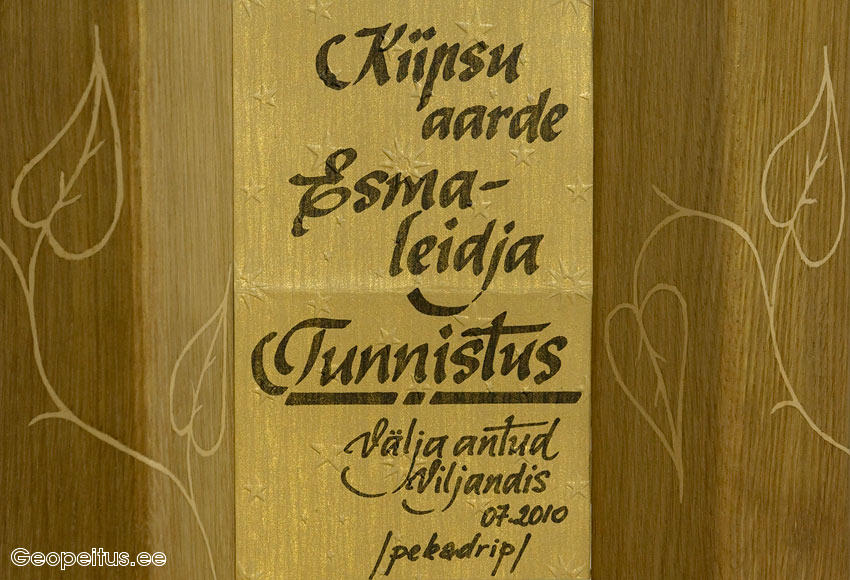 Kiipsu
aarde
Esma-
leidja
Tunnistus
Välja antud
Viljandis
07-2010
/pekadrip/
Geopeitus.ee